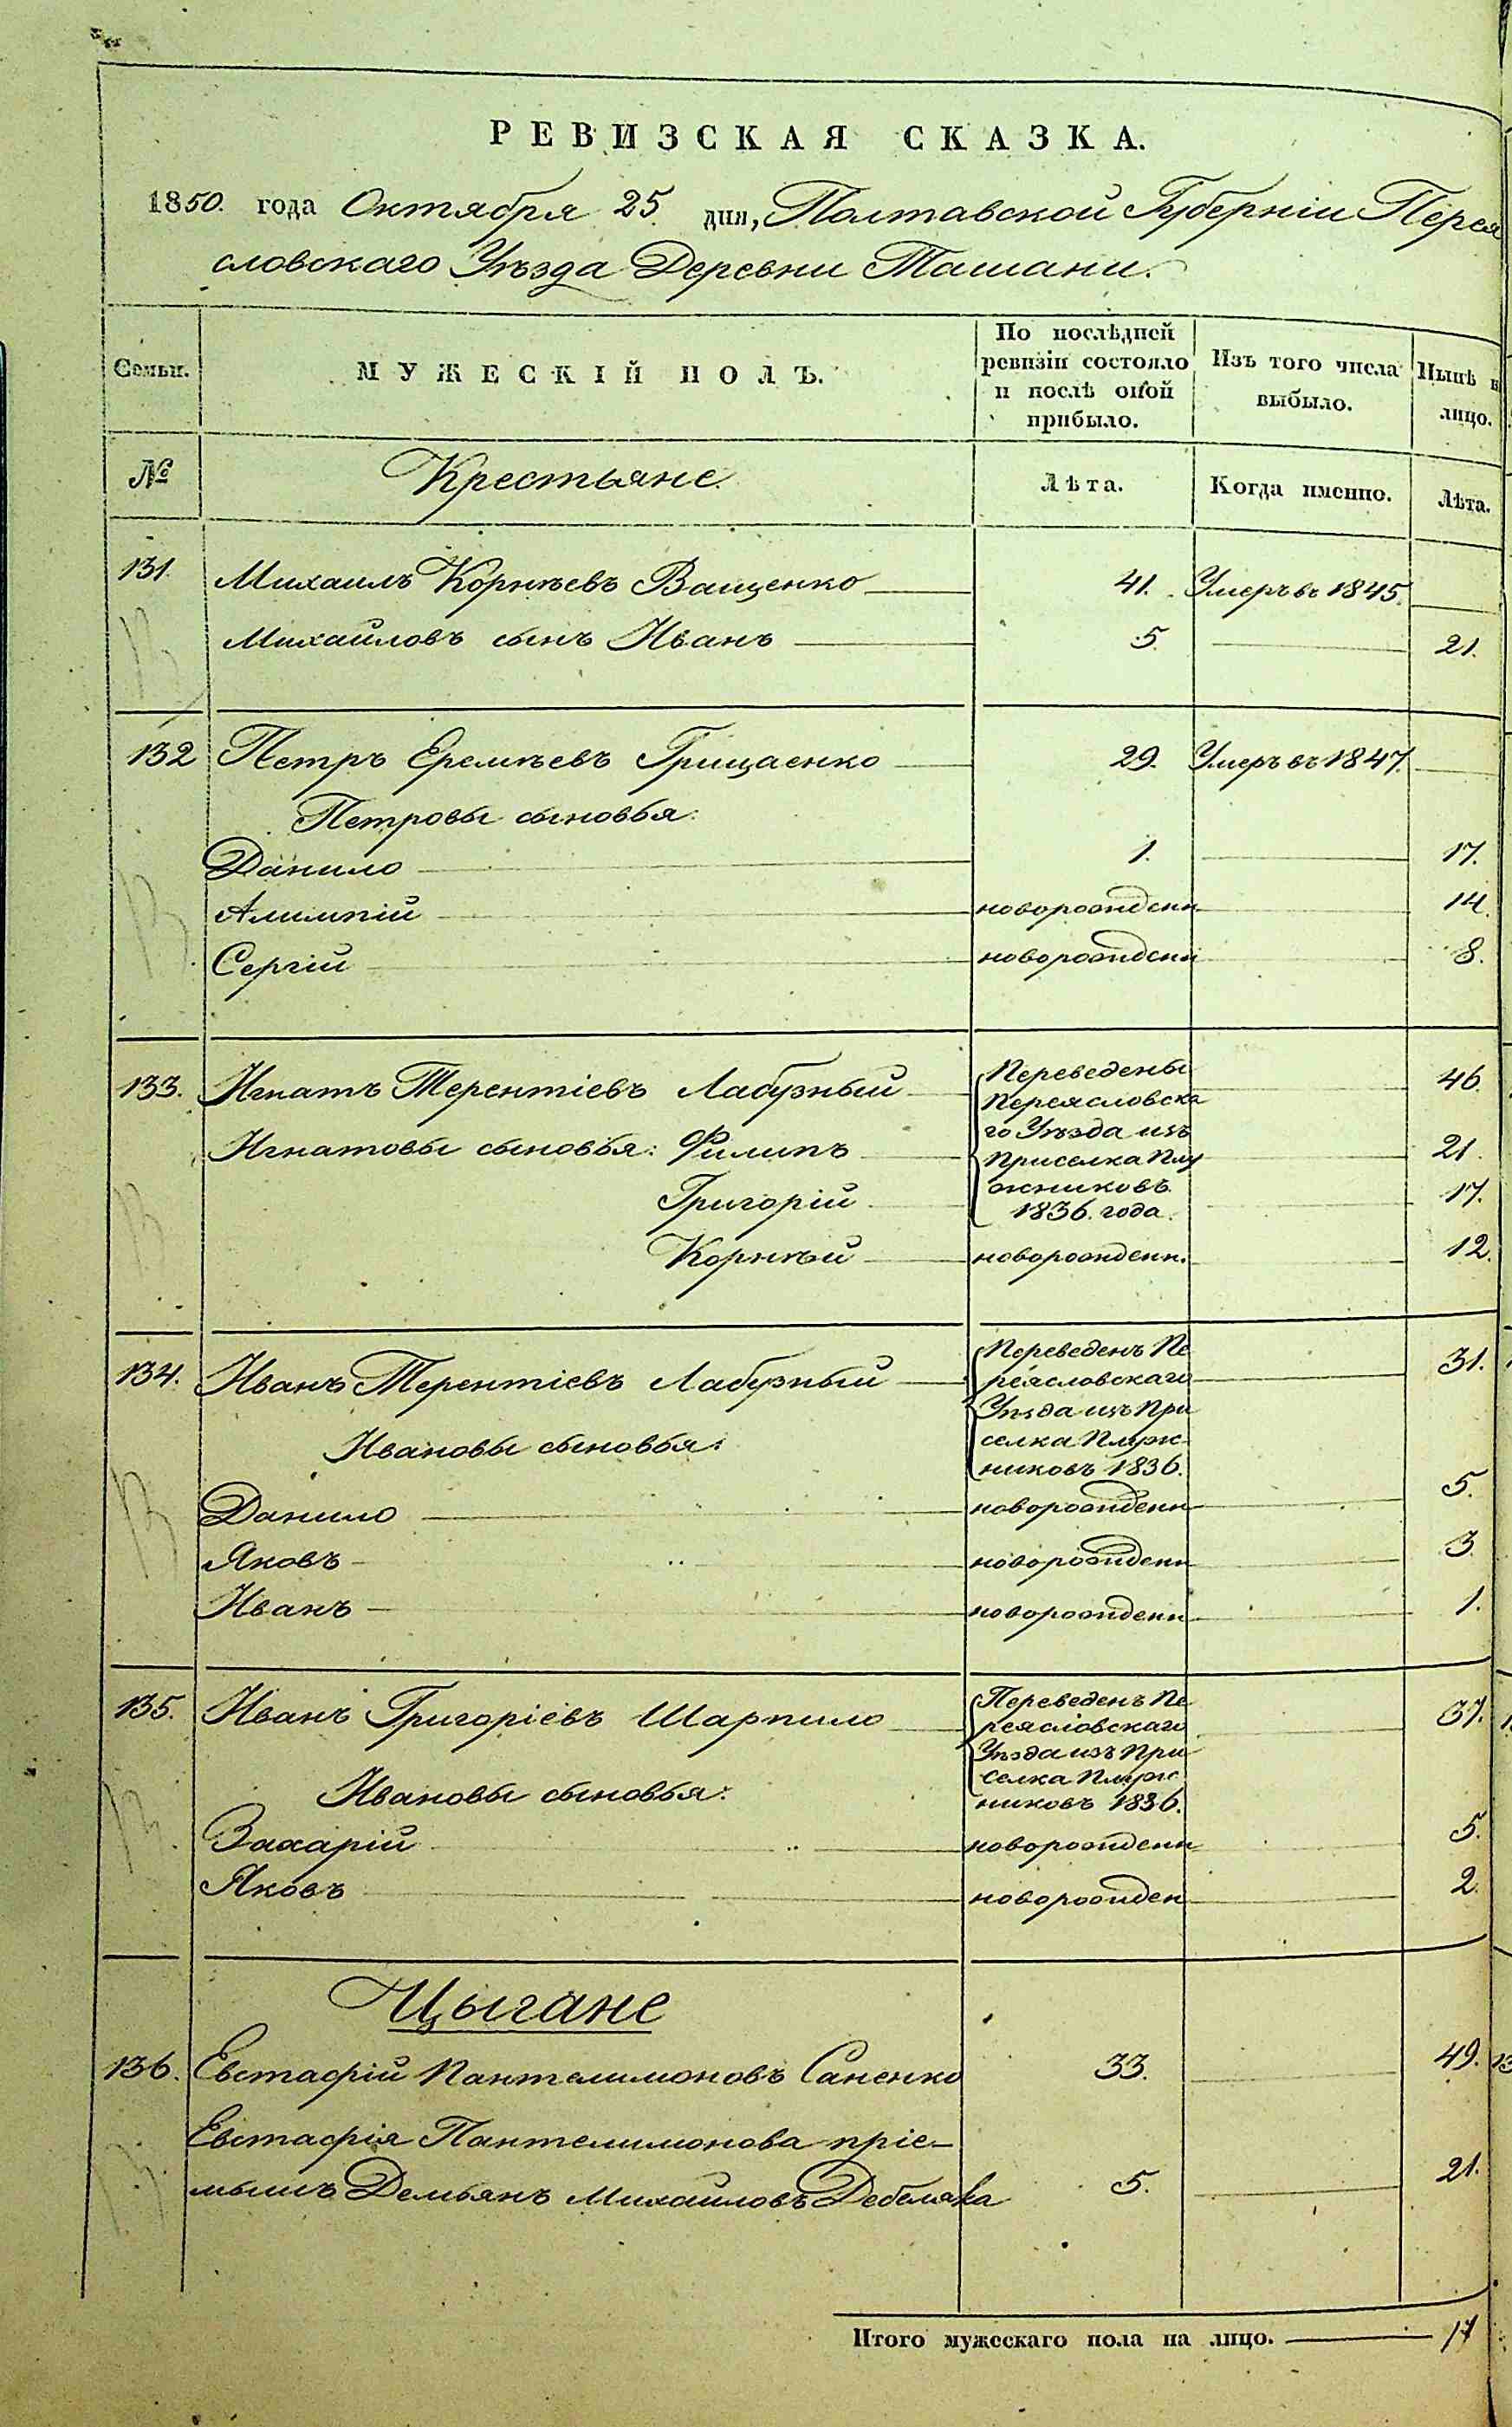 РЕВИЗСКАЯ СКАЗКА.
1850. года Октября 25. дня, Полтавской Губерніи Перея
словскаго Уѣзда Деревни Ташани.
Семьи. МУЖЕСКІЙ ПОЛЪ. По послѣдней ревизіи состояло и послѣ оной прибыло. Изъ того числа выбыло. Нынѣ н лицо.
№ Крестьяне. Лѣта. Когда именно. Лѣта.
131. Михаилъ Корнѣевъ Ващенко 41. Умеръ въ 1845.
Михайловъ сынъ Иванъ 5. 21.
132 Петръ Еремѣевъ Грицаенко 29. Умеръ въ 1847.
Петровы сыновья:
Данило 1. 17.
Алимпій новорожденн 14.
Сергій новорожденн 8.
133. Игнатъ Терентіевъ Лабузный Переведены 46.
Переясловска
го Уѣзда изъ
Игнатовы сыновья: Филипъ Приселка Плу 21.
жниковъ
Григорій 1836. года. 17.
Корнѣй новорожденн. 12.
134. Иванъ Терентіевъ Лабузный Переведенъ Пе 31.
реясловскаго
Уѣзда изъ При
Ивановы сыновья: селка Плуж-
никовъ 1836.
Данило новорожденн 5.
Яковъ новорожденн 3.
Иванъ новорожденн 1.
135. Иванъ Григоріевъ Шарпило Переведенъ Пе 37.
реясловскаго
Уѣзда изъ При
Ивановы сыновья: селка Плуж
никовъ 1836.
Захарій новорожденн 5.
Яковъ новорожден 2.
Цыгане
136. Евстафій Пантелимоновъ Саненко 33. 49.
Евстафія Пантелимонова пріе-
мышъ Демьянъ Михайловъ Дебеляка 5. 21.
Итого мужескаго пола на лицо. 17